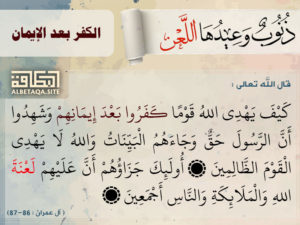 ذُنُوبٌ وَعِيدُهَا اللَّعْن
الكفر بعد الإيمان
البطاقة
ALBETAQA.SITE
قال الله تعالى :
كَيْفَ يَهْدِي اللهُ قَوْمًا كَفَرُوا بَعْدَ إِيمَانِهِمْ وَشَهِدُوا
أَنَّ الرَّسُولَ حَقٌّ وَجَاءَهُمُ الْبَيِّنَاتُ وَاللهُ لَا يَهْدِي
الْقَوْمَ الظَّالِمِينَ أُولَئِكَ جَزَاؤُهُمْ أَنَّ عَلَيْهِمْ لَعْنَةَ
اللهِ وَالْمَلَائِكَةِ وَالنَّاسِ أَجْمَعِينَ
( آل عمران : 86-87 )